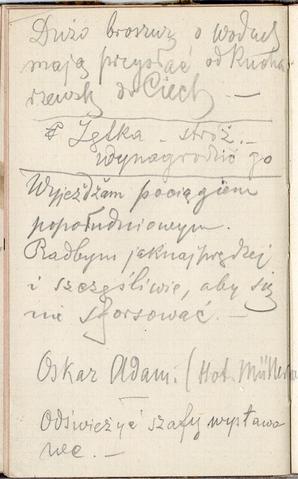 Dużo broszur o wodach
mają przysłać od Kucha
rzewsk do Ciech —
Jętka – stróż. –
wynagrodzić go
Wyjeżdżam pociągiem
popołudniowym.
Radbym jaknajprędzej
i szczęśliwie, aby się
nie sforsować. –
Oskar Adam. (Hot. Müllera
Odświeżyć szafy wystawo
we. –